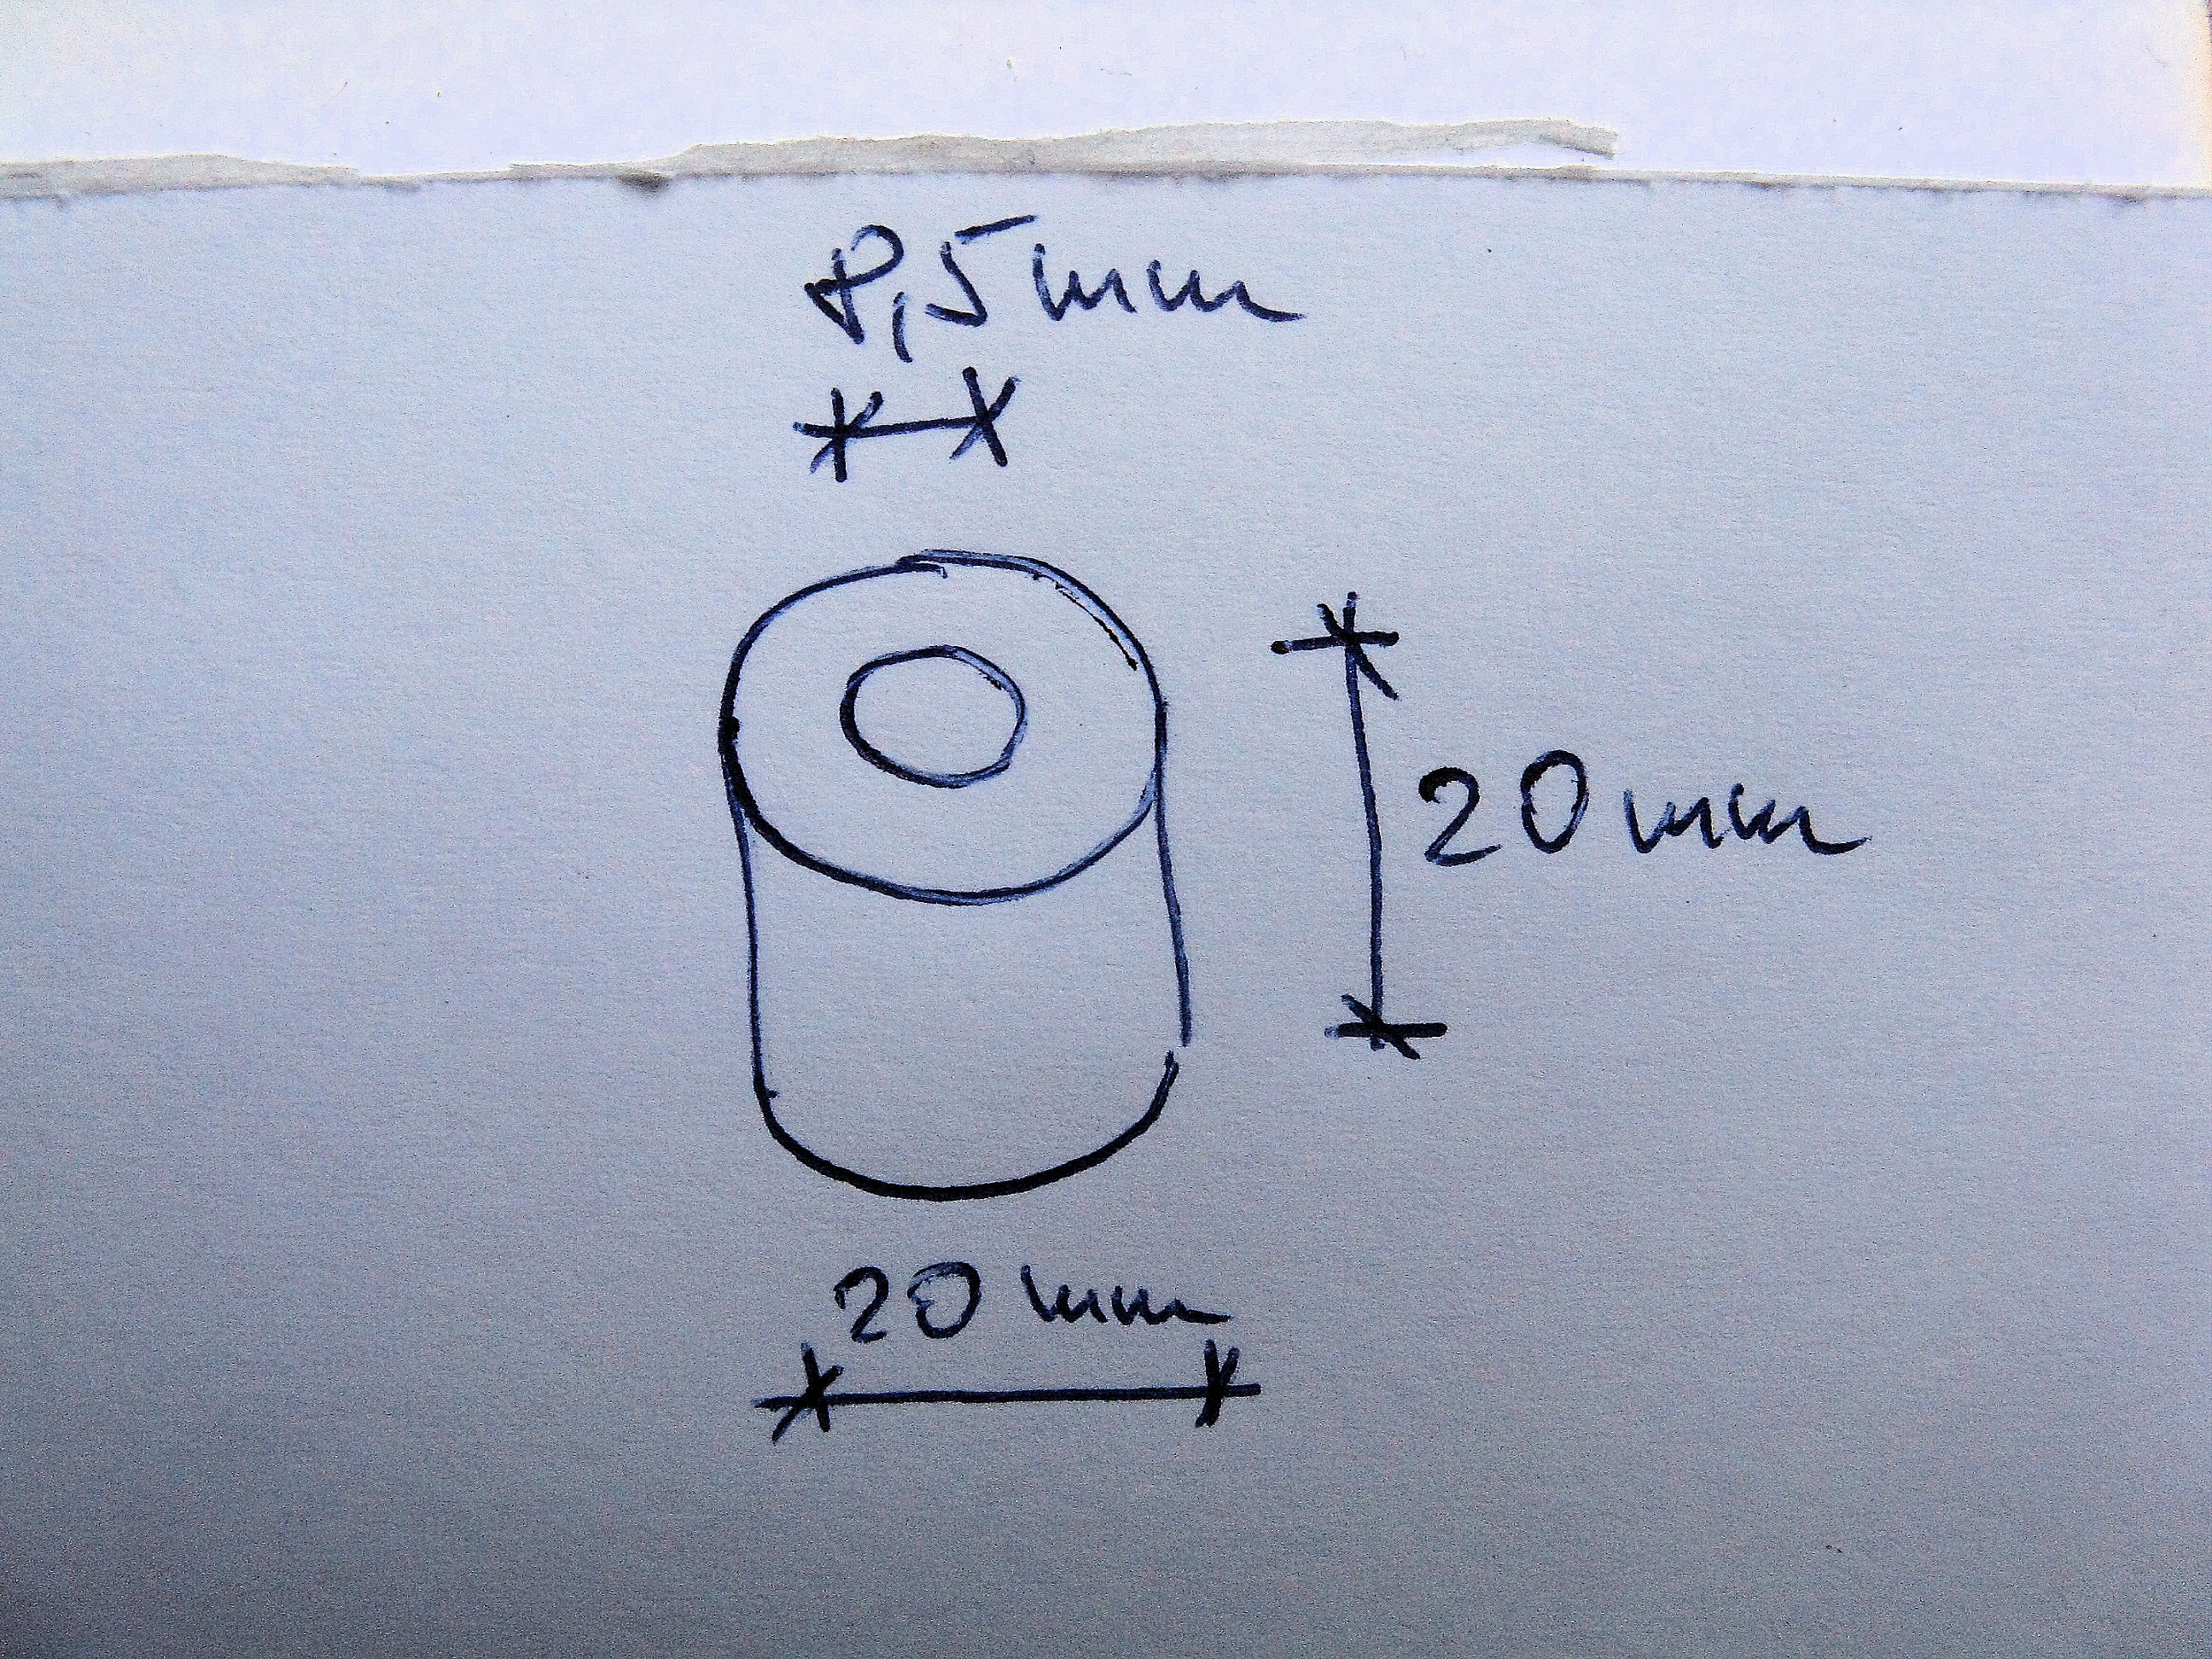 8,5 mm
20 mm
20 mm